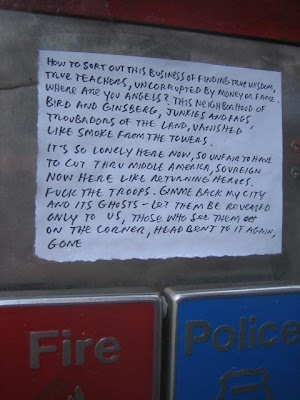 HOW TO SORT OUT THIS BUSINESS OF FINDING TRUE WISDOM,
TRUE TEACHERS, UNCORRUPTED BY MONEY OR FAME.
WHERE ARE YOU ANGELS? THIS NEIGHBORHOOD OF
BIRD AND GINSBERG, JUNKIES AND FAGS,
TROUBADORS OF THE LAND, VANISHED
LIKE SMOKE FROM THE TOWERS.
IT'S SO LONELY HERE NOW, SO UNFAIR TO HAVE
TO CUT THRU MIDDLE AMERICA, SOVREIGN
NOW HERE LIKE RETURNING HEROES.
FUCK THE TROOPS. GIMME BACK MY CITY
AND ITS GHOSTS - LET THEM BE REVEALED
ONLY TO US, THOSE WHO SEE THEM
ON THE CORNER, HEAD BENT TO IT AGAIN,
GONE
Fire
Police